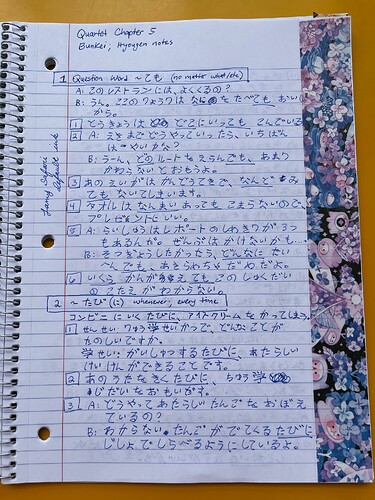 Quartet Chapter 5
Bunkei, Hyougen notes
1 Question word ~ても (no matter what/etc)
A: このレストランには、よくくるの?
B: うん。ここのりょうりはなにをたべてもおいしい
から。
1 どうきょうは どこにいっても こんでいる
2 A: えきまでどうやっていったら、いちばん
はやいかな?
B: うーん、どのルートをえらんでも、あまり
かわらないとおもうよ。
3 あのえいがはかんどうてきで、なんど み
ても ないてしまいます。
4 タオルはなんまいあってもこまらないので、
プレゼントにいい。
5 A: らいしゅうはレポートのしめきりが3つ
もあるんだ。ぜんぶはかけないかも...
B: そつぎょうしたかったら、どんなに たい
へんでも、あきらめちゃだめだよ。
6 いくら かんがえても このしゅくだい
のこたえがわからない。
2 ~たび(に) whenever, every time
コンビニにいくたびに、アイスクリームをかってしまう。
1 せんせい: りゅう学せいかつで、どんなことが
たのしいですか。
学せい: がいしゅつするたびに、あたらしい
けいけんができることです。
2 あのうたをきくたびに、ちゅう学
じだいをおもいだす。
3 A: どうやってあたらしいたんごをおぼえ
ているの?
B: わからないたんごがでてくるたびに、
じしょでしらべるようにしているよ。